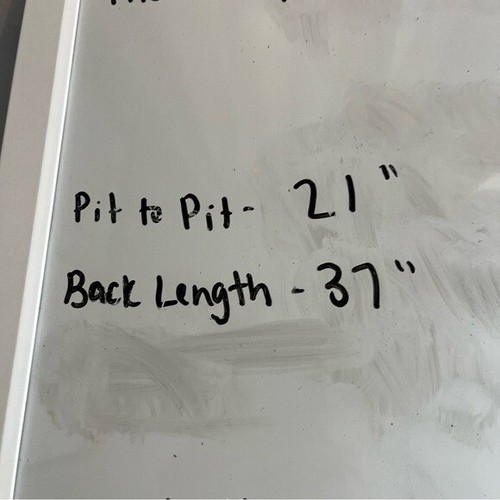 Pit to Pit- 21"
Back Length - 37"